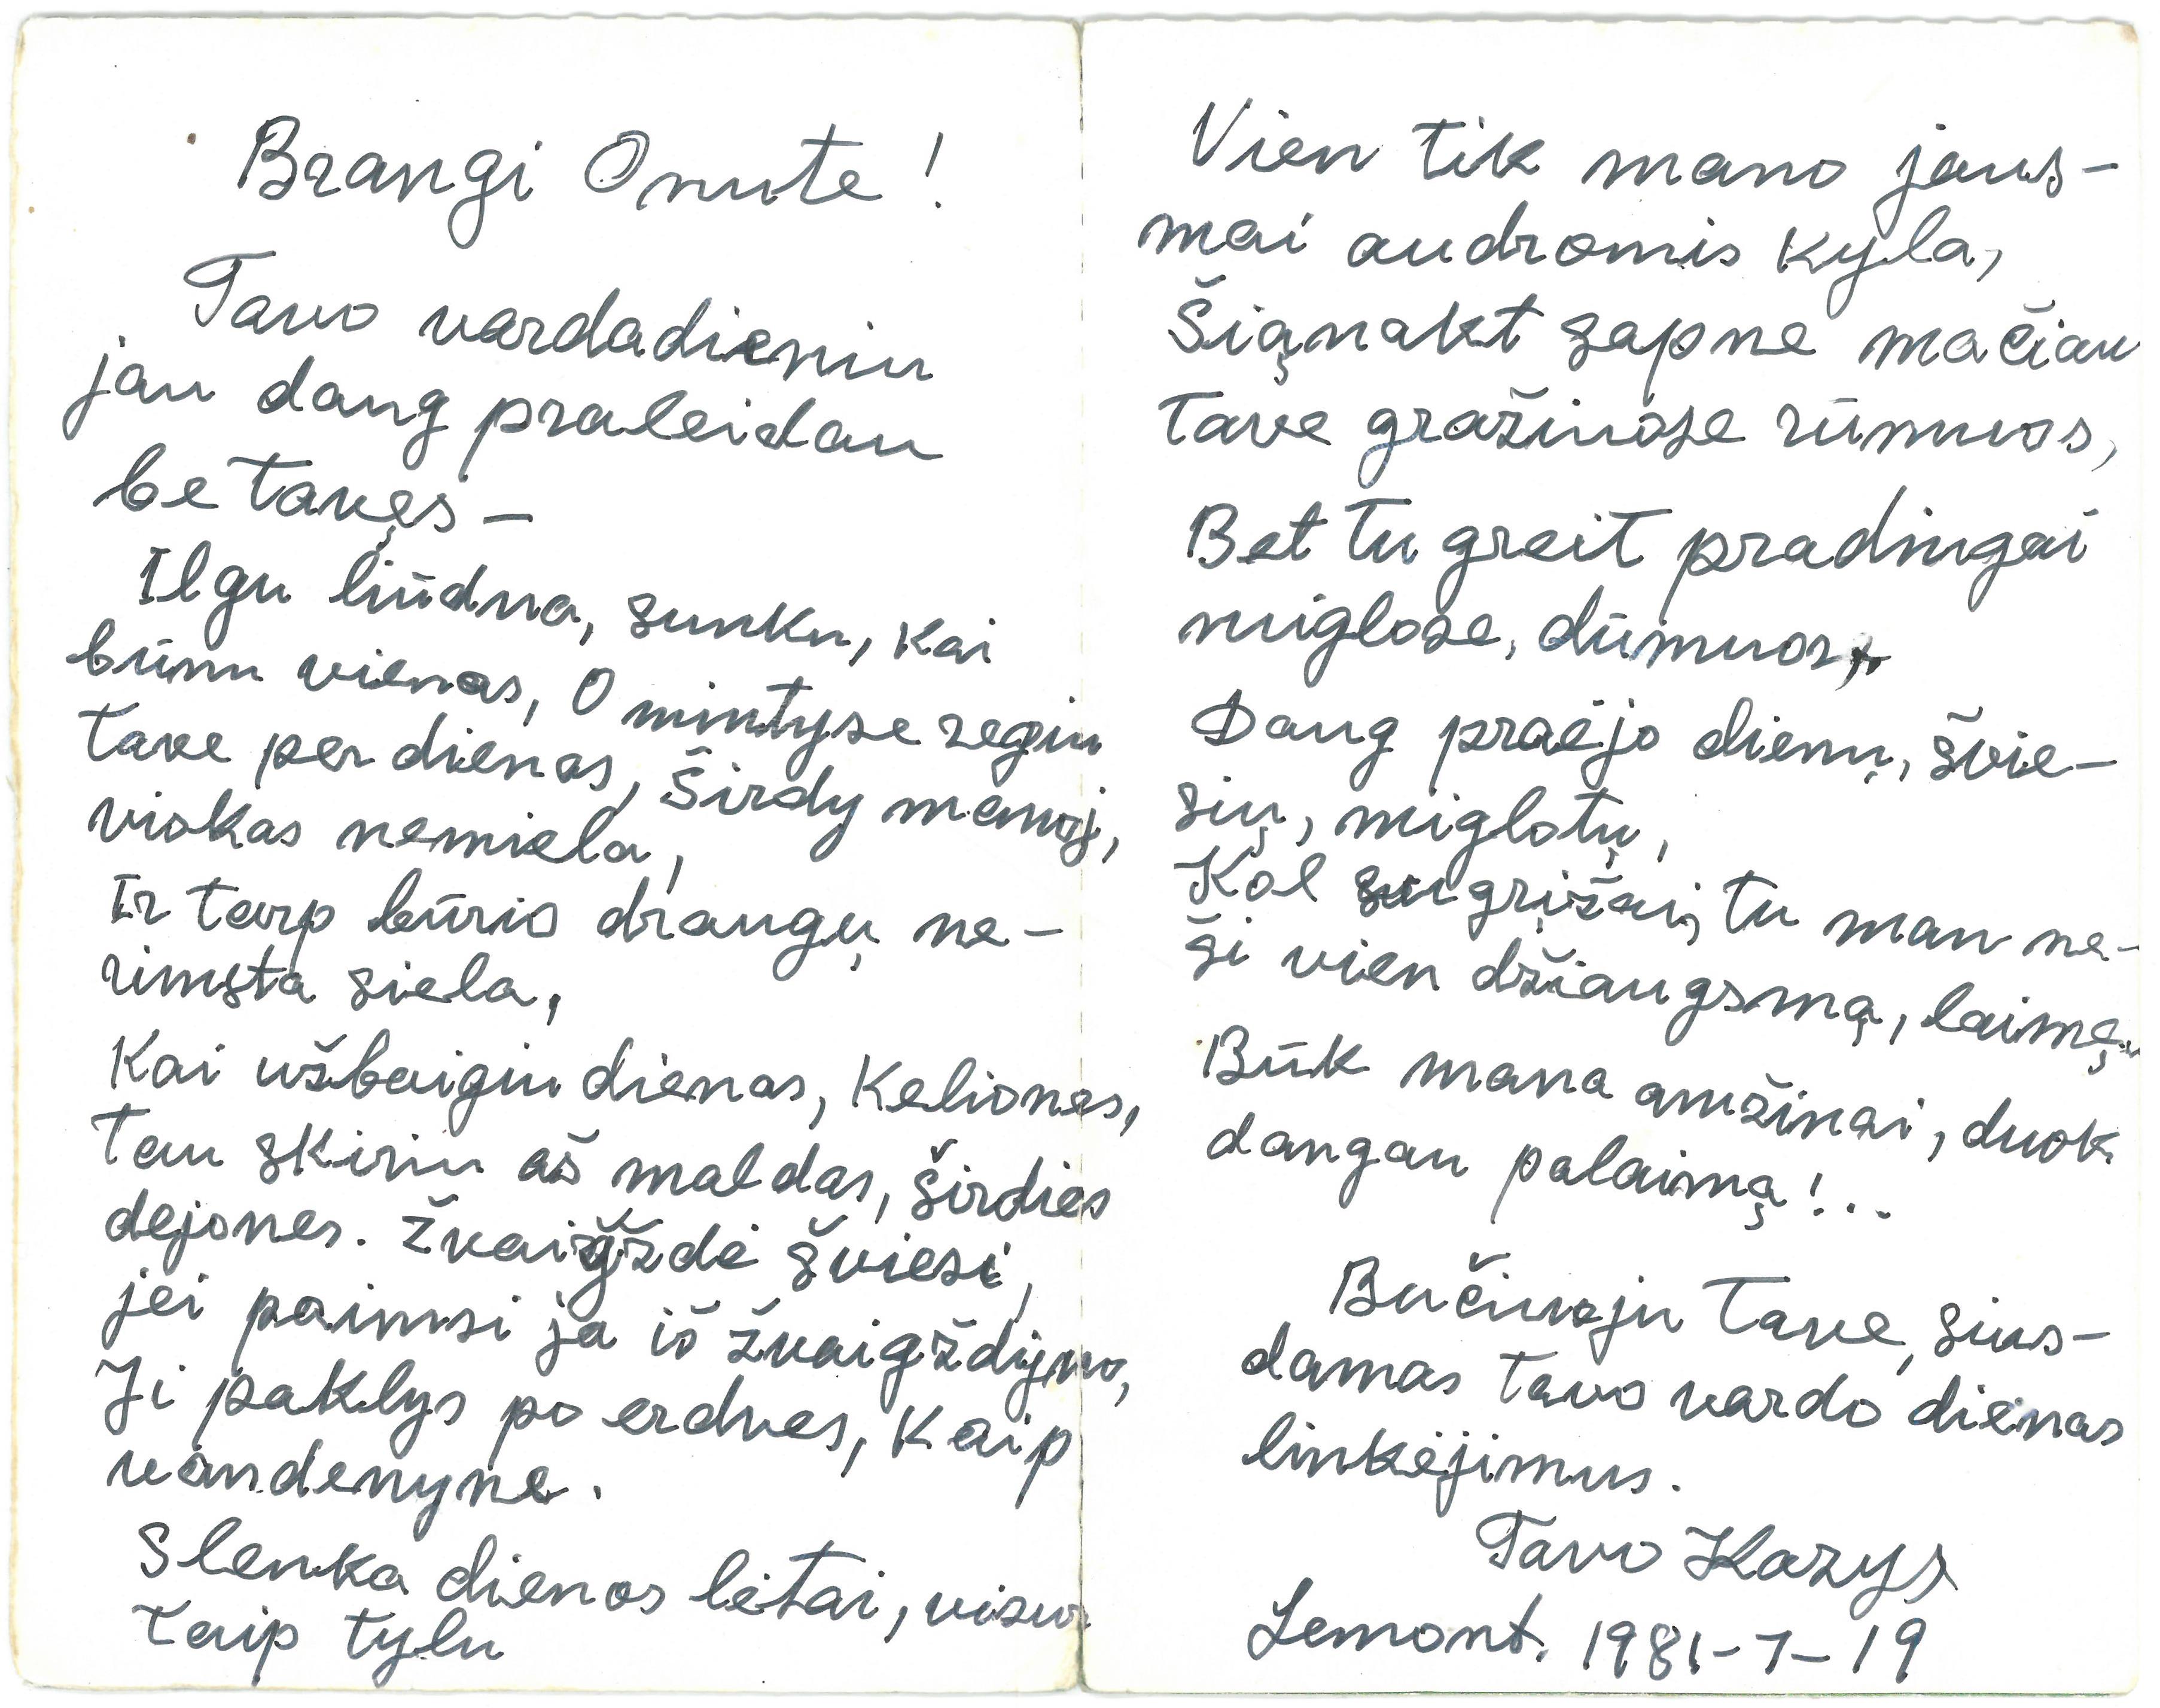 Brangi Onute!
Tavo vardadieniu
jau daug praleidau
be tavęs –
Ilgu liūdna, sunku, kai
būnu vienas, O mintyse regiu
tave per dienas, Širdy manoj,
viskas nemiela,
Ir tarp būrio draugų ne-
rimsta siela,
Kai užbaigiu dienas, keliones,
tau skiriu aš maldas, širdies
dejones. Žvaigždė šviesi,
jei paimsi ja iš žvaigždyno,
Ji paklys po erdves, kaip
vandenyne.
Slenka dienos lėtai, visur
taip tylu
Vien tik mano jaus-
mai audromis kyla,
Šiąnakt sapne mačiau
tave gražiuose rūmuos,
Bet tu greit pradingai
miglose, dūmuos,
Daug praėjo dienų, švie-
sių, miglotų,
Kol sugrįžai, tu man ne-
ši vien džiaugsmą, laimę,
Būk mana amžinai, duok
dangau palaimą!..
Bučiuoju tave, sius-
damas tavo vardo dienas
linkėjimus.
Tavo Kazys
Lemont. 1981-7-19